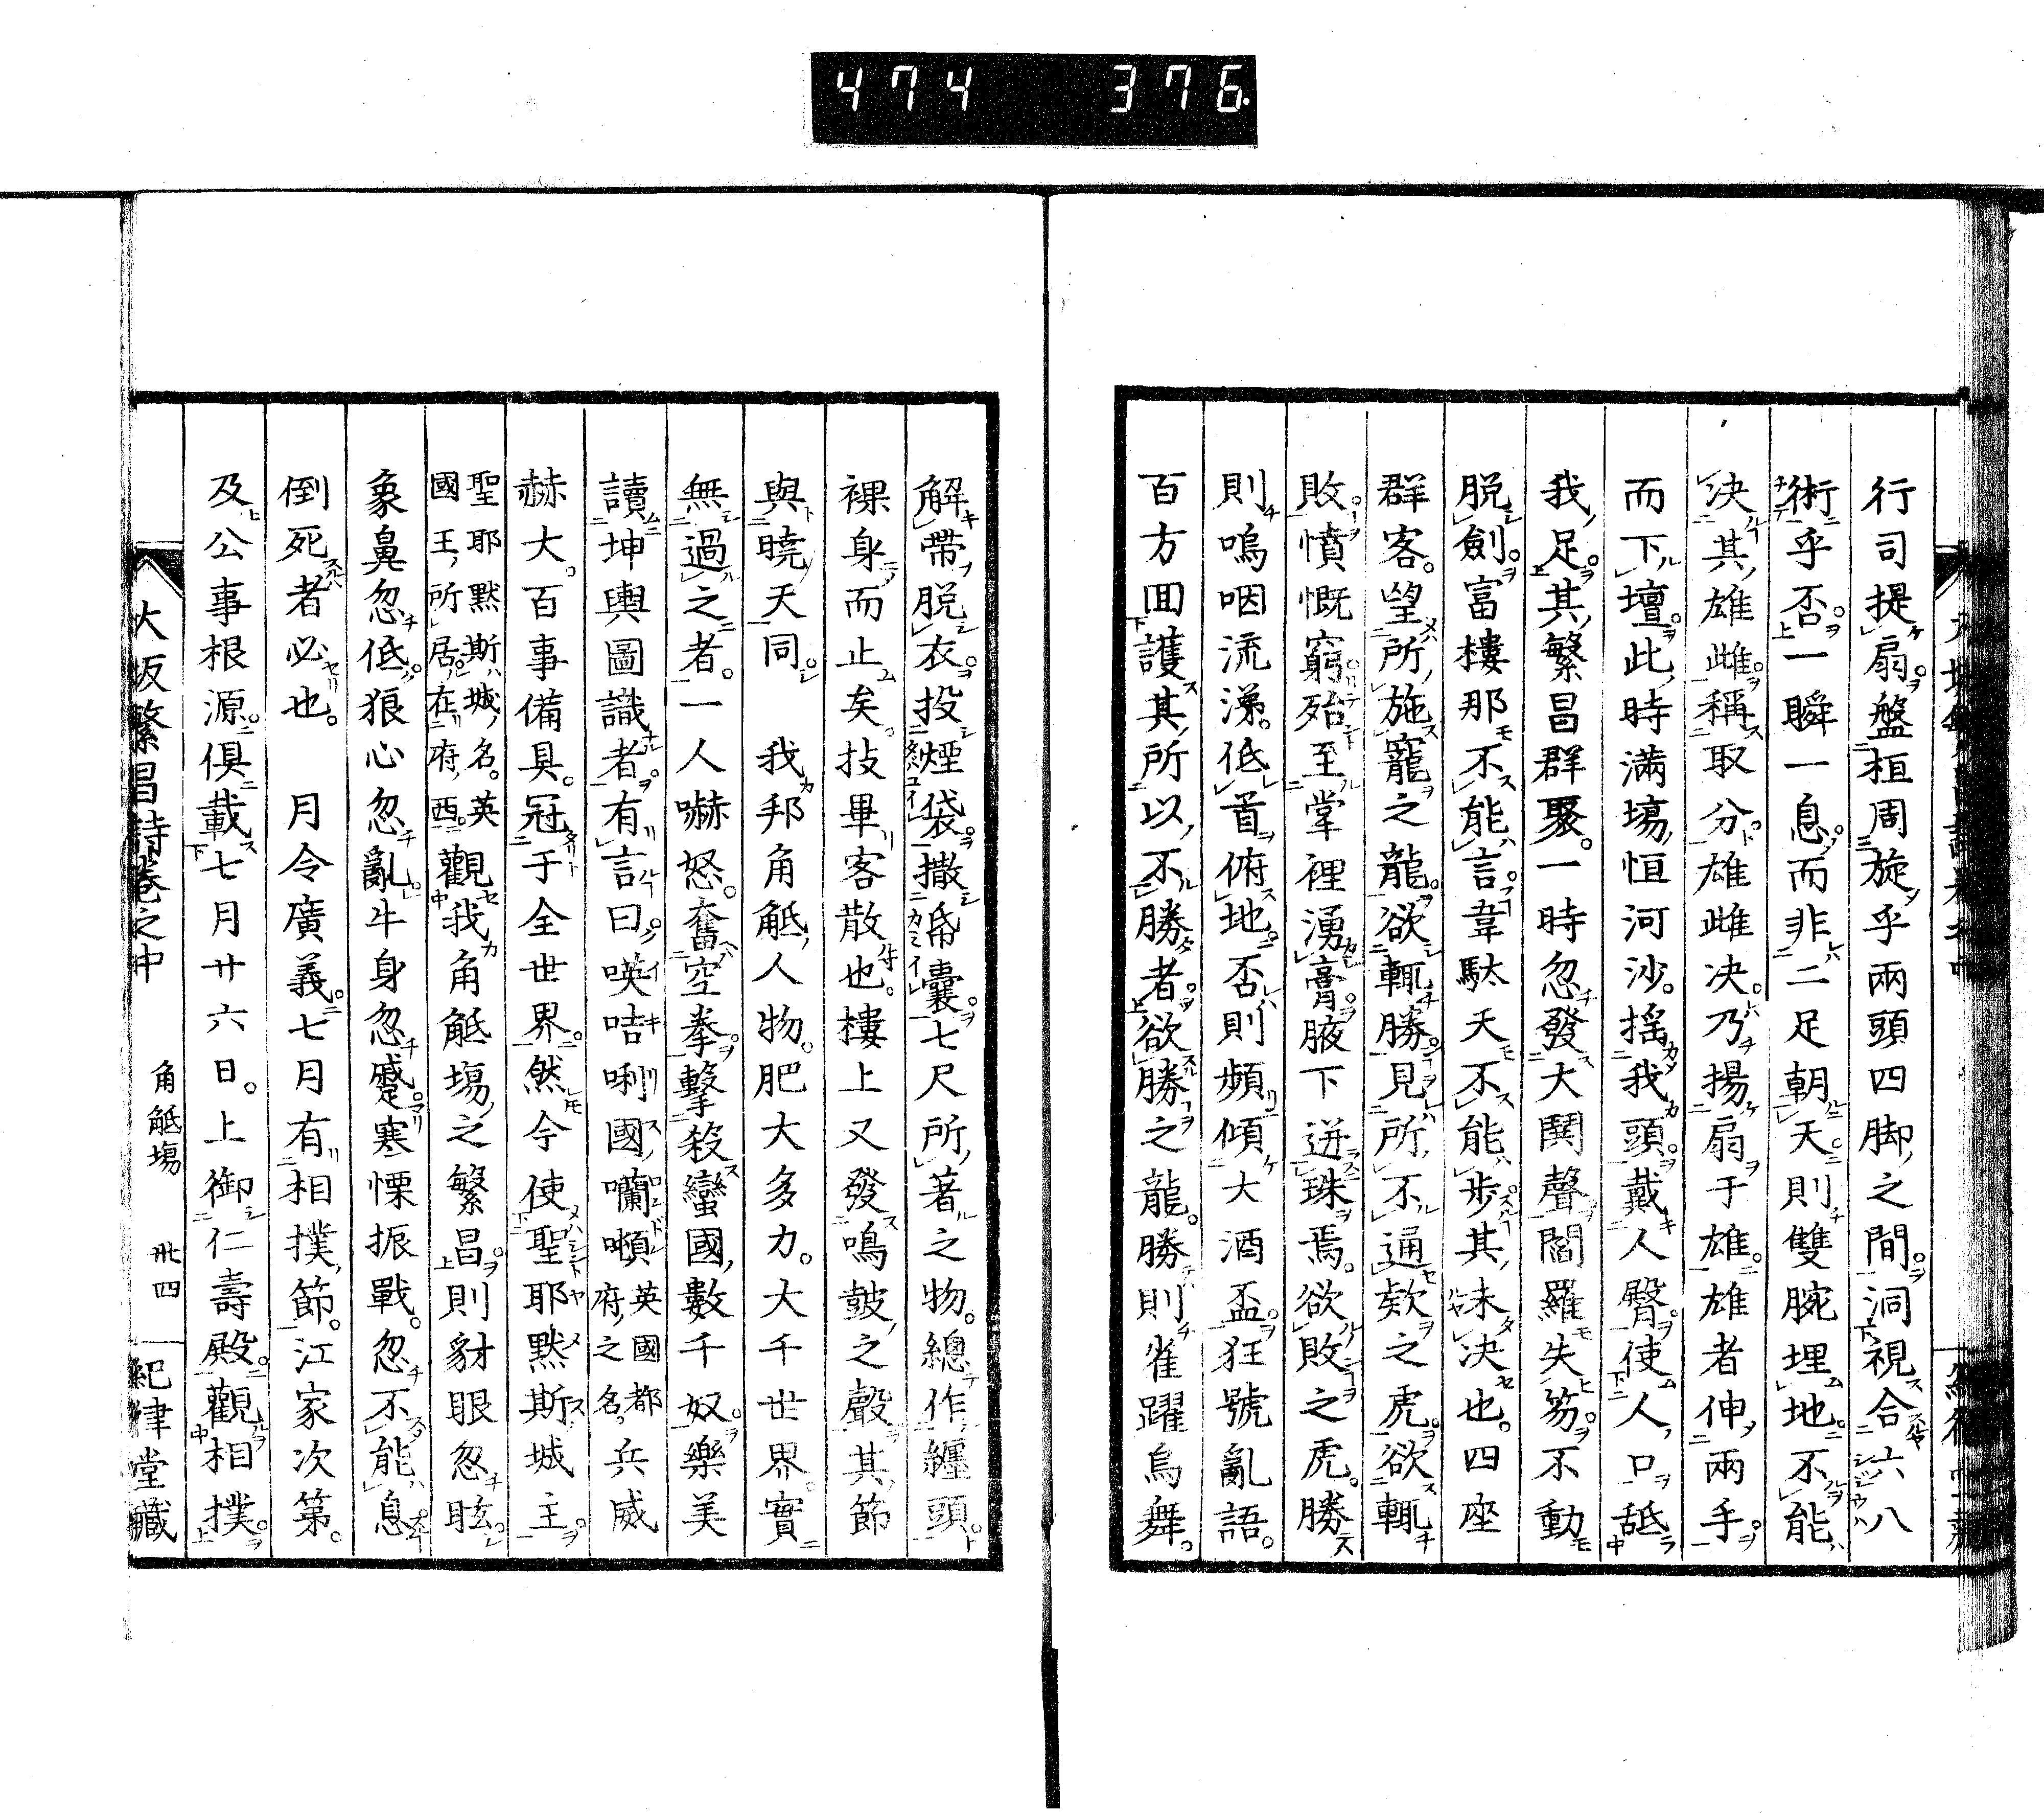 474 376
行司提扇。盤桓周旋乎兩頭四脚之間。洞視合六八
術乎否。一瞬一息。而非二足朝天則雙腕埋地。不能
決其雄雌。稱取分雄雌決。乃揚扇于雄。雄者伸兩手。
而下壇。此時滿塲恒河沙。搖我頭。戴人臀。使人口舐
我足。其繁昌群聚。一時忽發大鬨聲。閻羅失笏。不動
脱劍。富樓那不能言。韋駄天不能歩。其未決也。四座
群客。望所施寵之龍。欲輒勝。見所不通欵之虎。欲輒
敗。憤慨窮殆至掌裡湧膏。腋下迸珠焉。欲敗之虎。勝
則嗚咽流涕。低首俯地。否則頻傾大酒盃。狂號亂語。
百方囬護其所以不勝者。欲勝之龍。勝則雀躍烏舞。
解帶脱衣。投煙袋。撒帋囊。七尺所著之物。總作纏頭。
裸身而止矣。技畢客散也。樓上又發鳴皷之聲。其節
與曉天同。　我邦角觝人物。肥大多力。大千世界。實
無過之者。一人嚇怒。奮空拳。擊殺蠻國數千奴。樂美
讀坤輿圖識者。有言曰。暎咭唎國囒噸英國都府之名。兵威
赫大。百事備具。冠于全世界。然今使聖耶黙斯城主
聖耶黙斯ハ城名。英國王所居。在府西。觀我角觝塲之繁昌。則豺眼忽眩。
象鼻忽低。狼心忽亂。牛身忽蹙。寒慄振戰。忽不能息
倒死者必也。　月令廣義。七月有相撲節。江家次第。
及公事根源。俱載七月廿六日。上御仁壽殿。觀相撲
大坂繁昌詩卷之中　角觝塲　卅四　紀律堂藏